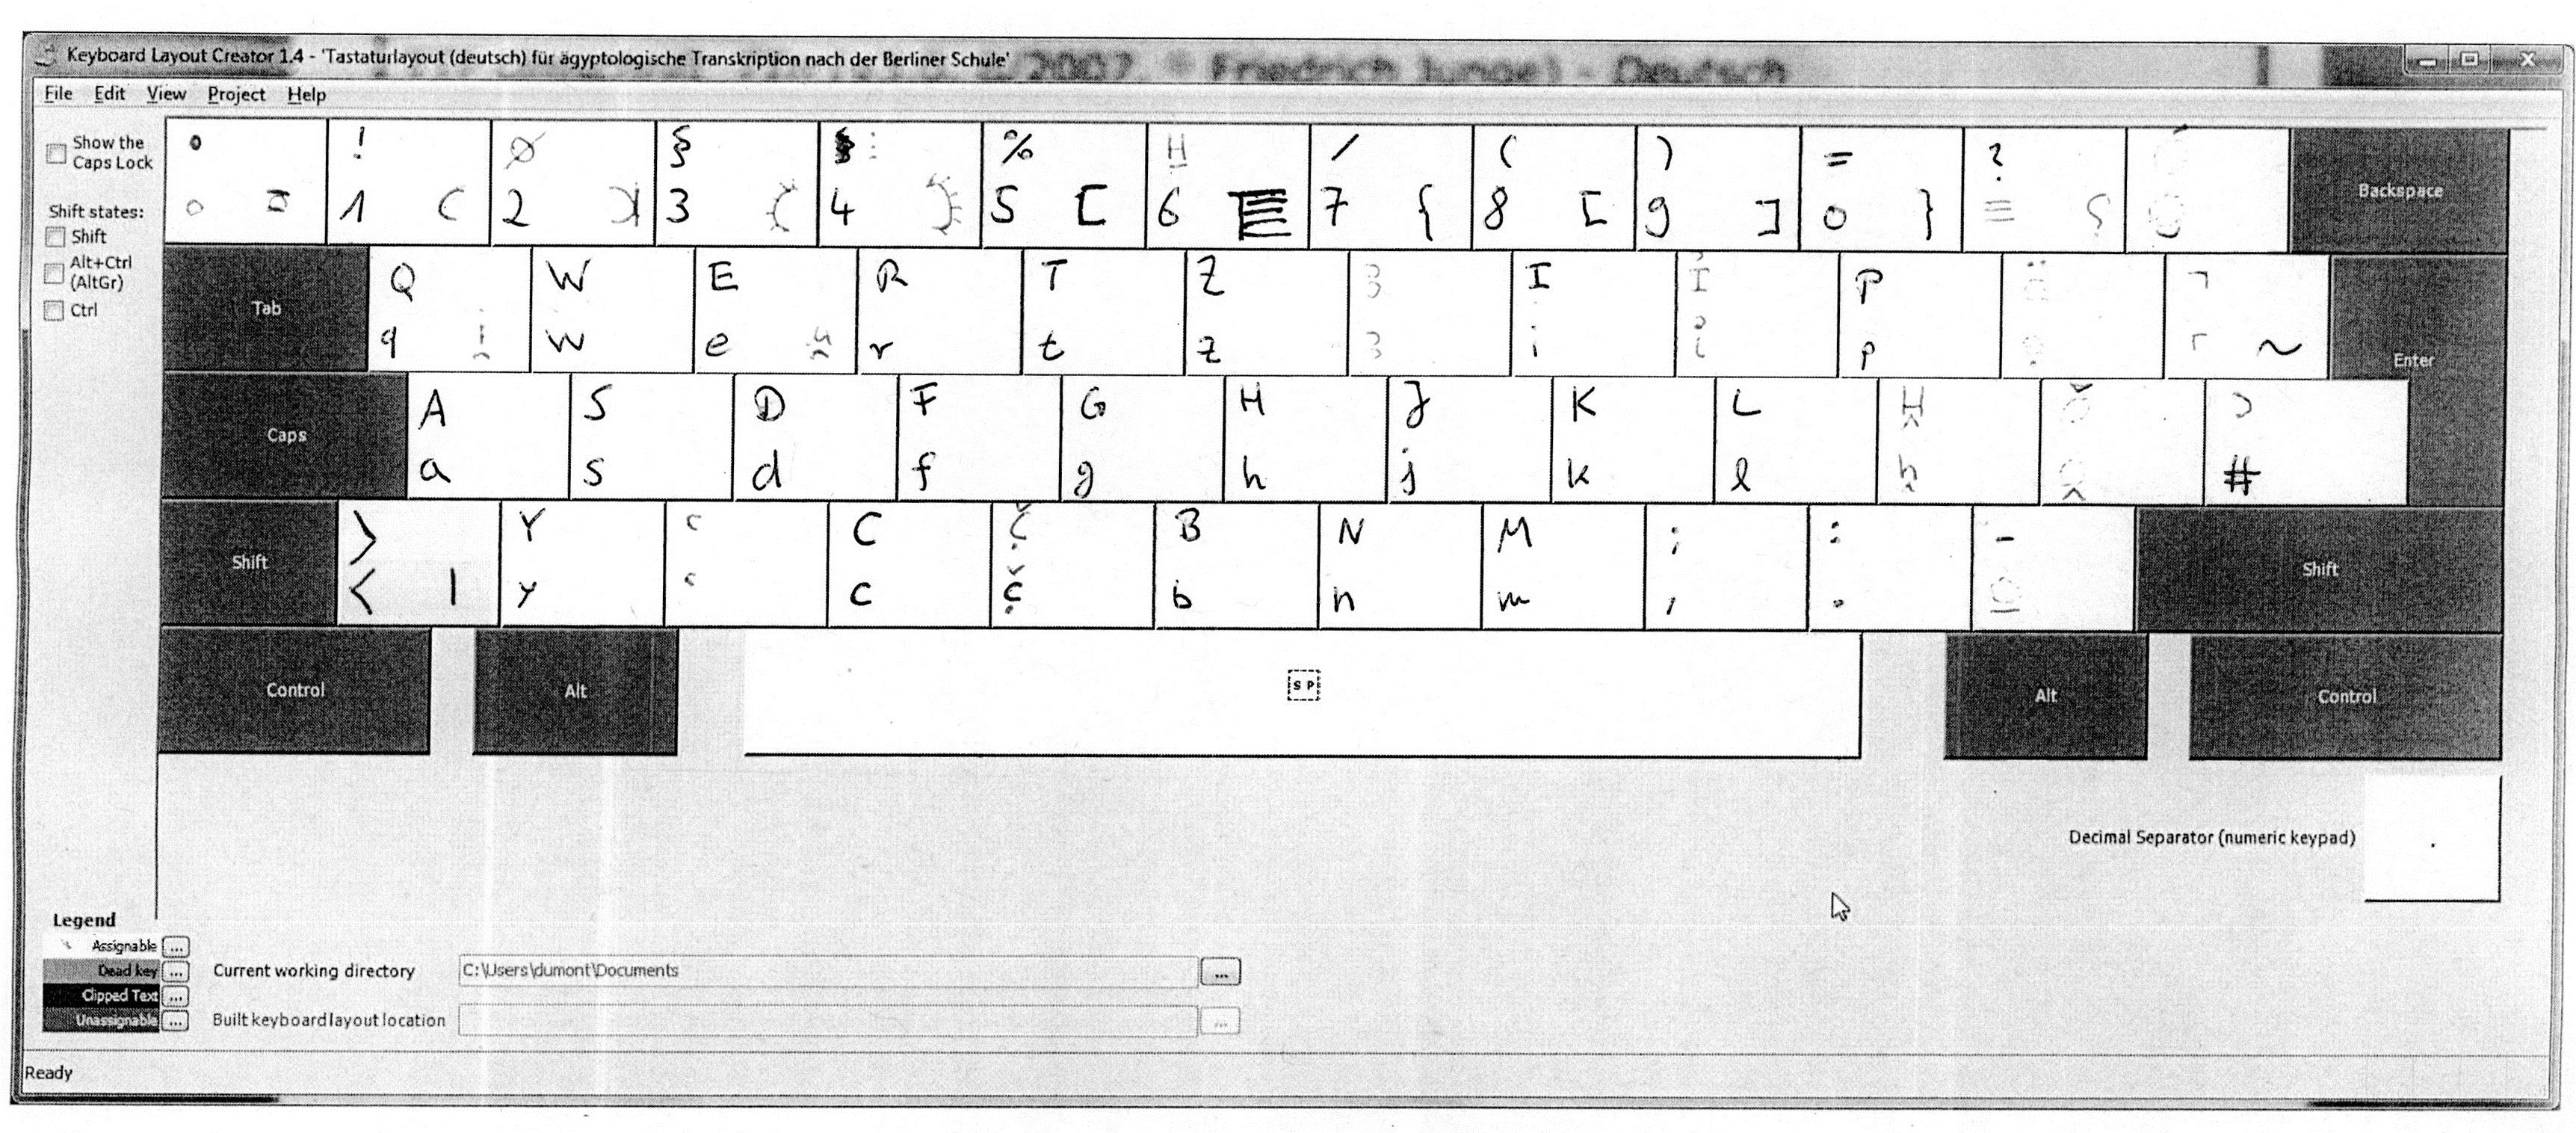 Keyboard Layout Creator 1.4 - 'Tastaturlayout (deutsch) für ägyptologische Transkription nach der Berliner Schule'
2007 * Friedrich Junge) - Deutsch
File Edit View Project Help
Show the
Caps Lock
Shift states:
Shift
Alt+Ctrl
(AltGr)
Ctrl
! § % H / ( ) = ?
1 ( 2 3 4 5 [ 6 7 { 8 [ 9 ] 0 }
Backspace
Tab
Q W E R T Z Ȝ I P
q w e r t z ȝ i p ~
Enter
Caps
A S D F G H J K L
a s d f g h j k l #
Shift
> Y C B N M ; : -
< | y c č̣ b n m , .
Shift
Control
Alt
SP
Alt
Control
Decimal Separator (numeric keypad)
.
Legend
Assignable ...
Dead key ...
Clipped Text ...
Unassignable ...
Current working directory C:\Users\dumont\Documents ...
Built keyboard layout location ...
Ready